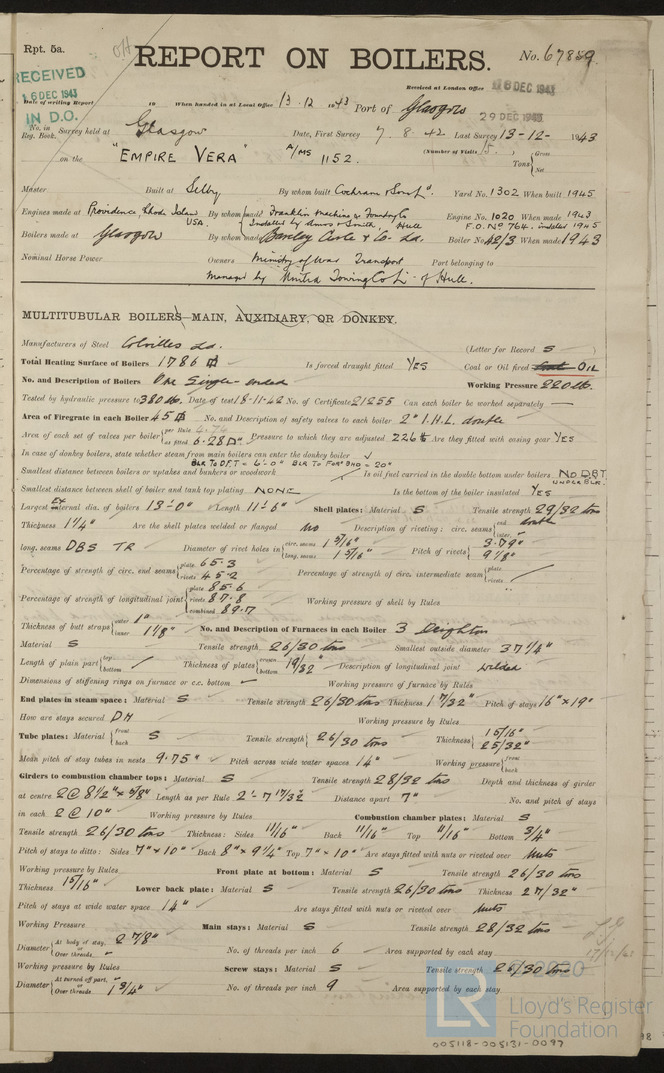 Rpt. 5a.
REPORT ON BOILERS.
No. 67859
RECEIVED
16 DEC 1943
IN D.O.
Received at London Office 16 DEC 1943
29 DEC 1943
Date of writing Report 19 When handed in at Local Office 13.12.1943 Port of Glasgow
No. in Reg. Book. Survey held at Glasgow Date, First Survey 7.8.42 Last Survey 13-12-1943
on the "EMPIRE VERA" A/MS 1152. (Number of Visits 15.) Tons {Gross Net
Master Built at Selby By whom built Cochrane & Sons Ld. Yard No. 1302 When built 1945
Engines made at Providence, Rhode Island USA. By whom made Franklin Machine & Foundry Co Engine No. 1020 When made 1943
Installed by Amos & Smith Hull F.O. No 764. installed 1945
Boilers made at Glasgow By whom made Barclay Curle & Co. Ld. Boiler No. 42/3 When made 1943
Nominal Horse Power Owners Ministry of War Transport Port belonging to
Managed by United Towing Co Ld. of Hull.
MULTITUBULAR BOILERS MAIN, AUXILIARY, OR DONKEY.
Manufacturers of Steel Colvilles Ld. (Letter for Record S)
Total Heating Surface of Boilers 1786 Is forced draught fitted YES Coal or Oil fired Coal OIL
No. and Description of Boilers One Single-ended Working Pressure 220 lb.
Tested by hydraulic pressure to 380 lb. Date of test 18-11-42 No. of Certificate 21255 Can each boiler be worked separately —
Area of Firegrate in each Boiler 45 No. and Description of safety valves to each boiler 2" I.H.L. double
Area of each set of valves per boiler {per Rule 4.76 as fitted 6.28 Pressure to which they are adjusted 226 Are they fitted with easing gear YES
In case of donkey boilers, state whether steam from main boilers can enter the donkey boiler
BLR TO D.F.T = 6'-0" BLR TO FORD BHD = 20"
Smallest distance between boilers or uptakes and bunkers or woodwork Is oil fuel carried in the double bottom under boilers NO DBT UNDER BLR.
Smallest distance between shell of boiler and tank top plating NONE Is the bottom of the boiler insulated YES
Largest Ex internal dia. of boilers 13'-0" Length 11'-6" Shell plates: Material S Tensile strength 29/32 tons
Thickness 1 1/4" Are the shell plates welded or flanged No Description of riveting: circ. seams {end double inter.
long. seams DBS TR Diameter of rivet holes in {circ. seams 1 5/16" long. seams 1 5/16" Pitch of rivets {3.79" 9 1/8"
Percentage of strength of circ. end seams {plate 65.3 rivets 45.2 Percentage of strength of circ. intermediate seam {plate rivets
Percentage of strength of longitudinal joint {plate 85.6 rivets 87.8 combined 89.7 Working pressure of shell by Rules
Thickness of butt straps {outer 1" inner 1 1/8" No. and Description of Furnaces in each Boiler 3 Deighton
Material S Tensile strength 26/30 tons Smallest outside diameter 37 1/4"
Length of plain part {top bottom Thickness of plates {crown bottom 19/32 Description of longitudinal joint welded
Dimensions of stiffening rings on furnace or c.c. bottom — Working pressure of furnace by Rules
End plates in steam space: Material S Tensile strength 26/30 tons Thickness 1 7/32" Pitch of stays 16" x 19"
How are stays secured DN Working pressure by Rules
Tube plates: Material {front back S Tensile strength {26/30 tons Thickness {15/16" 25/32"
Mean pitch of stay tubes in nests 9.75" Pitch across wide water spaces 14" Working pressure {front back
Girders to combustion chamber tops: Material S Tensile strength 28/32 tons Depth and thickness of girder
at centre 2 @ 8 1/2" x 5/8" Length as per Rule 2'-7 17/32 Distance apart 7" No. and pitch of stays
in each 2 @ 10" Working pressure by Rules Combustion chamber plates: Material S
Tensile strength 26/30 tons Thickness: Sides 11/16" Back 11/16" Top 11/16" Bottom 3/4"
Pitch of stays to ditto: Sides 7" x 10" Back 8" x 9 1/4" Top 7" x 10" Are stays fitted with nuts or riveted over Nuts
Working pressure by Rules Front plate at bottom: Material S Tensile strength 26/30 tons
Thickness 15/16" Lower back plate: Material S Tensile strength 26/30 tons Thickness 27/32"
Pitch of stays at wide water space 14" Are stays fitted with nuts or riveted over Nuts
Working Pressure Main stays: Material S Tensile strength 28/32 tons
Diameter {At body of stay, or Over threads 2 7/8" No. of threads per inch 6 Area supported by each stay
Working pressure by Rules Screw stays: Material S Tensile strength 26/30 tons
Diameter {At turned off part, or Over threads 1 3/4" No. of threads per inch 9 Area supported by each stay
LR © 2020
Lloyd's Register
Foundation
005118-005131-0097